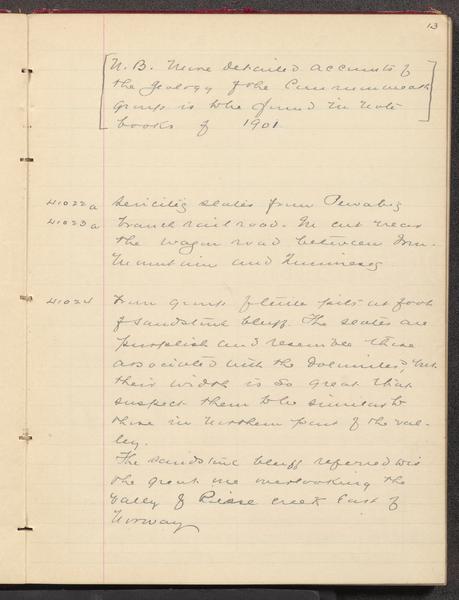 13
[N. B. More detailed accounts of
the geology of the Commonwealth
group is to be found in note
books of 1901.]
41022a Sericitic slates from Pewabic
41023a branch railroad. In cut near
the wagon road between Iron
Mountain and Quinnesec
41024 From group of little pits at foot
of sandstone bluff. The slates are
purplish and resemble those
associated with the dolomites, but
their width is so great that
suspect them to be similar to
those in northern part of the val-
ley.
The sandstone bluff referred to is
the great one overlooking the
valley of Creek East of
Norway